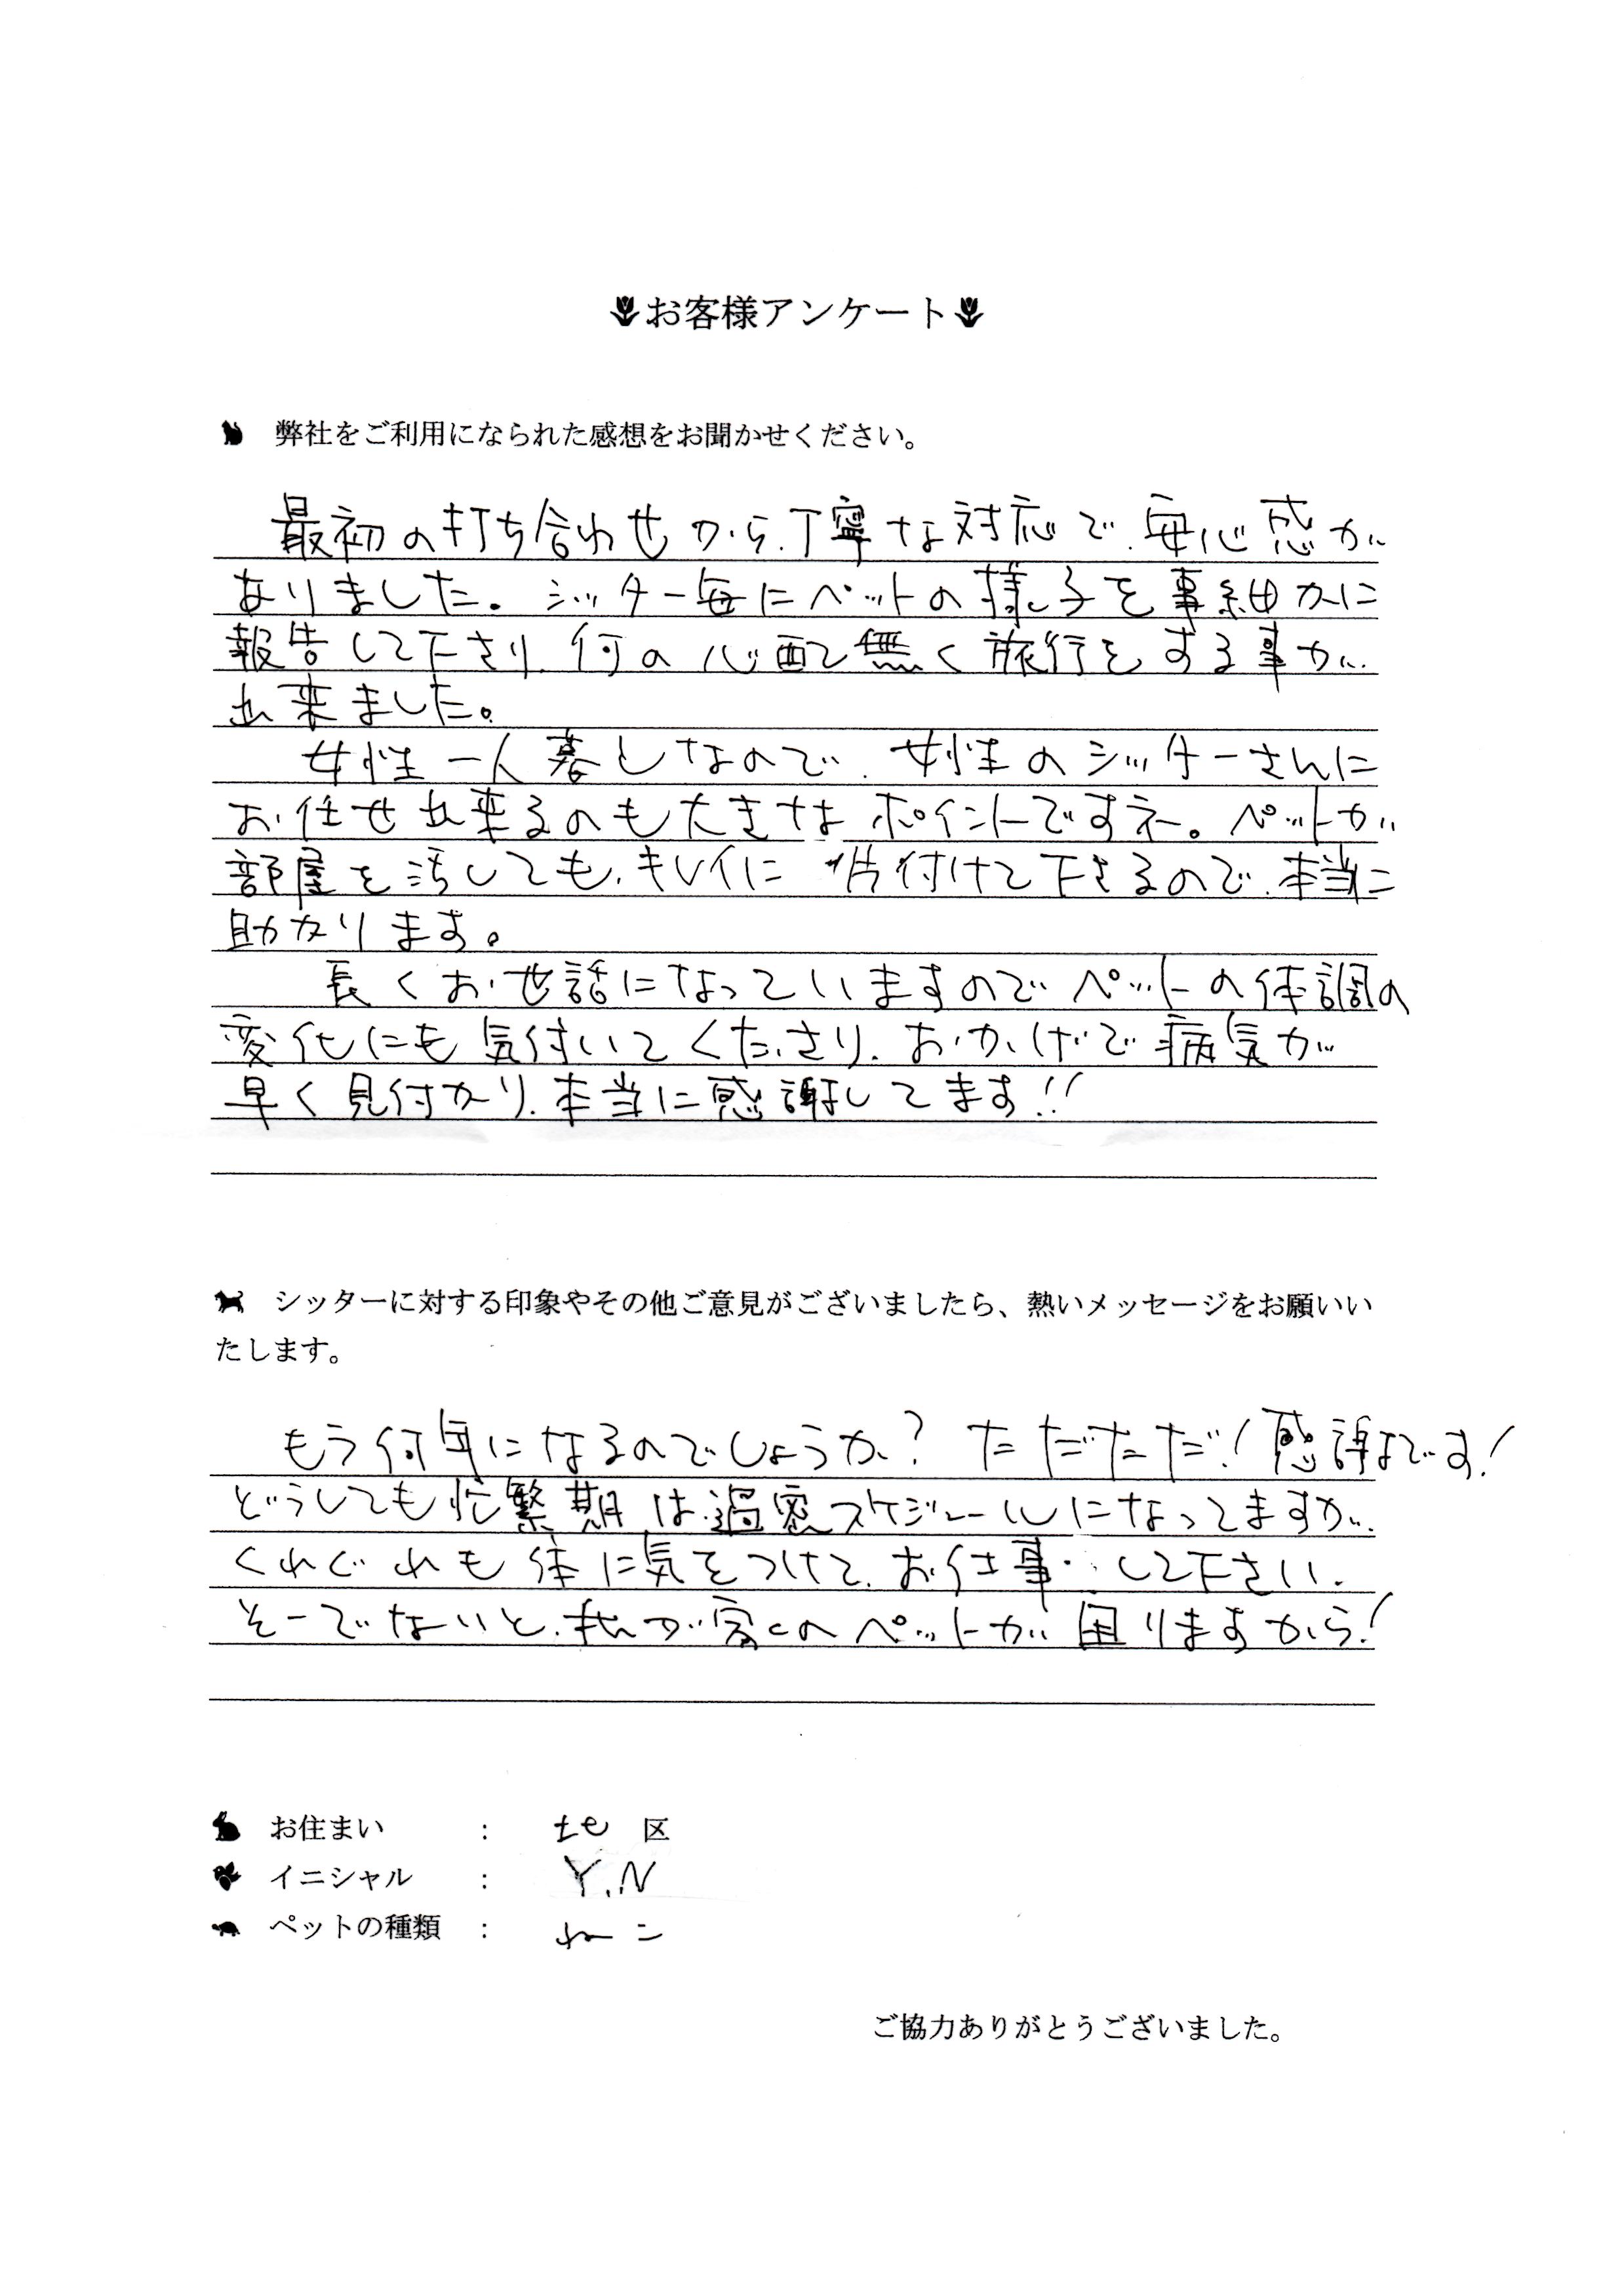 お客様アンケート
弊社をご利用になられた感想をお聞かせください。
最初の打ち合わせから、丁寧な対応で、安心感が
ありました。シッター毎にペットの様子を事細かに
報告して下さり、何の心配無く旅行をする事が
出来ました。
女性一人暮しなので、女性のシッターさんに
お任せ出来るのも大きなポイントですネ。ペットが
部屋を汚しても、キレイに片付けて下さるので、本当に
助かります。
長くお世話になっていますのでペットの体調の
変化にも気付いてくださり、おかげで病気が
早く見付かり、本当に感謝してます!!
シッターに対する印象やその他ご意見がございましたら、熱いメッセージをお願いい
たします。
もう何年になるのでしょうか? ただただ!感謝です!
どうしても忙繁期は過密スケジュールになってますが、
くれぐれも体に気をつけて、お仕事して下さい、
そーでないと、我が家のペットが困りますから!
お住まい : 北 区
イニシャル : Y.N
ペットの種類 : ねこ
ご協力ありがとうございました。